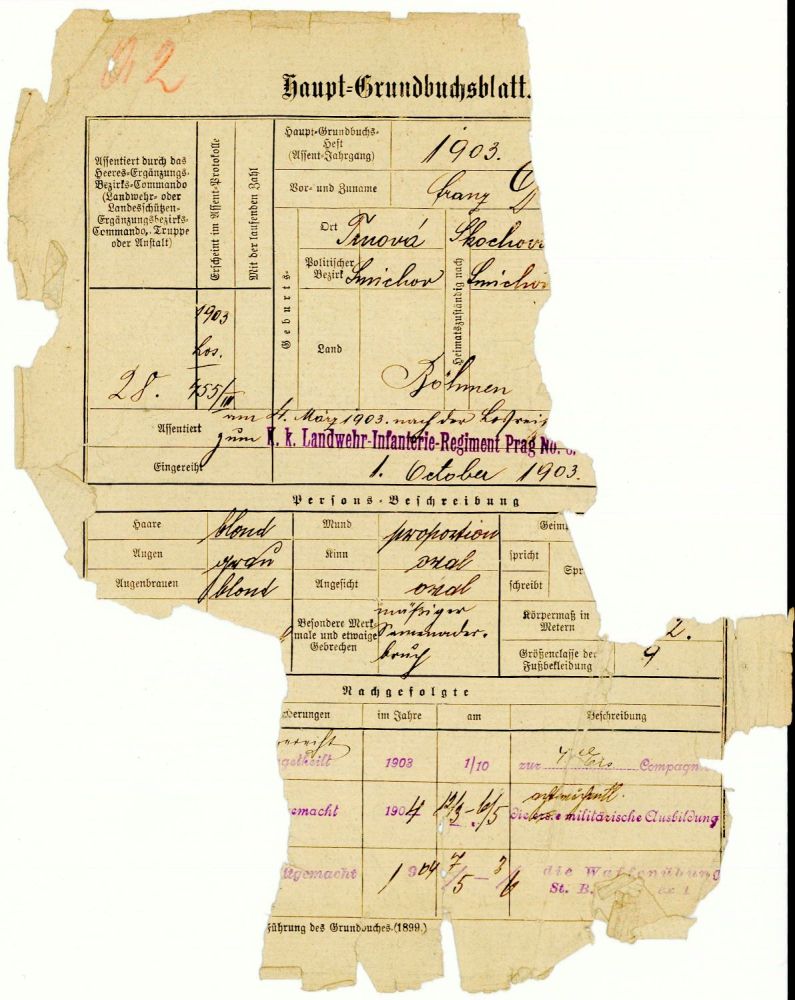 Haupt-Grundbuchsblatt.
Assentiert durch das
Heeres-Ergänzungs-
Bezirks-Commando
(Landwehr- oder
Landesschützen-
Ergänzungsbezirks-
Commando, Truppe
oder Anstalt)
Erscheint im Assent-Protokolle
Mit der laufenden Zahl
Haupt-Grundbuchs-
Heft
(Assent-Jahrgang)
1903.
Vor- und Zuname
Franz
Geburts-
Ort
Trnová
Heimatszuständig nach
Politischer
Bezirk
Smichov
Land
Böhmen
28.
1903
Los.
755/III
Assentiert
am 4. März 1903. nach der
zum K. k. Landwehr-Infanterie-Regiment Prag No.
Eingereiht
1. October 1903.
Persons-Beschreibung
Haare
blond
Mund
proportion
Augen
grau
Kinn
oval
spricht
Augenbrauen
blond
Angesicht
oval
schreibt
Besondere Merk-
male und etwaige
Gebrechen
mäßiger
bruch
Körpermaß in
Metern
2.
Größenclasse der
Fußbekleidung
9
Nachgefolgte
im Jahre
am
Beschreibung
1903
1/10
zur
gemacht
1904
militärische Ausbildung
gemacht
1904
7/5 - 3/6
die Waffenübung
St. B.
führung des Grundbuches (1899.)